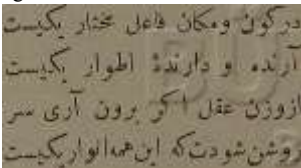 درکون ومکان فاعل مختار یکیست
آرنده و دارندهٔ اطوار یکیست
ازروزن عقل اکر برون آری سر
روشن شودت که این همه انوار یکیست